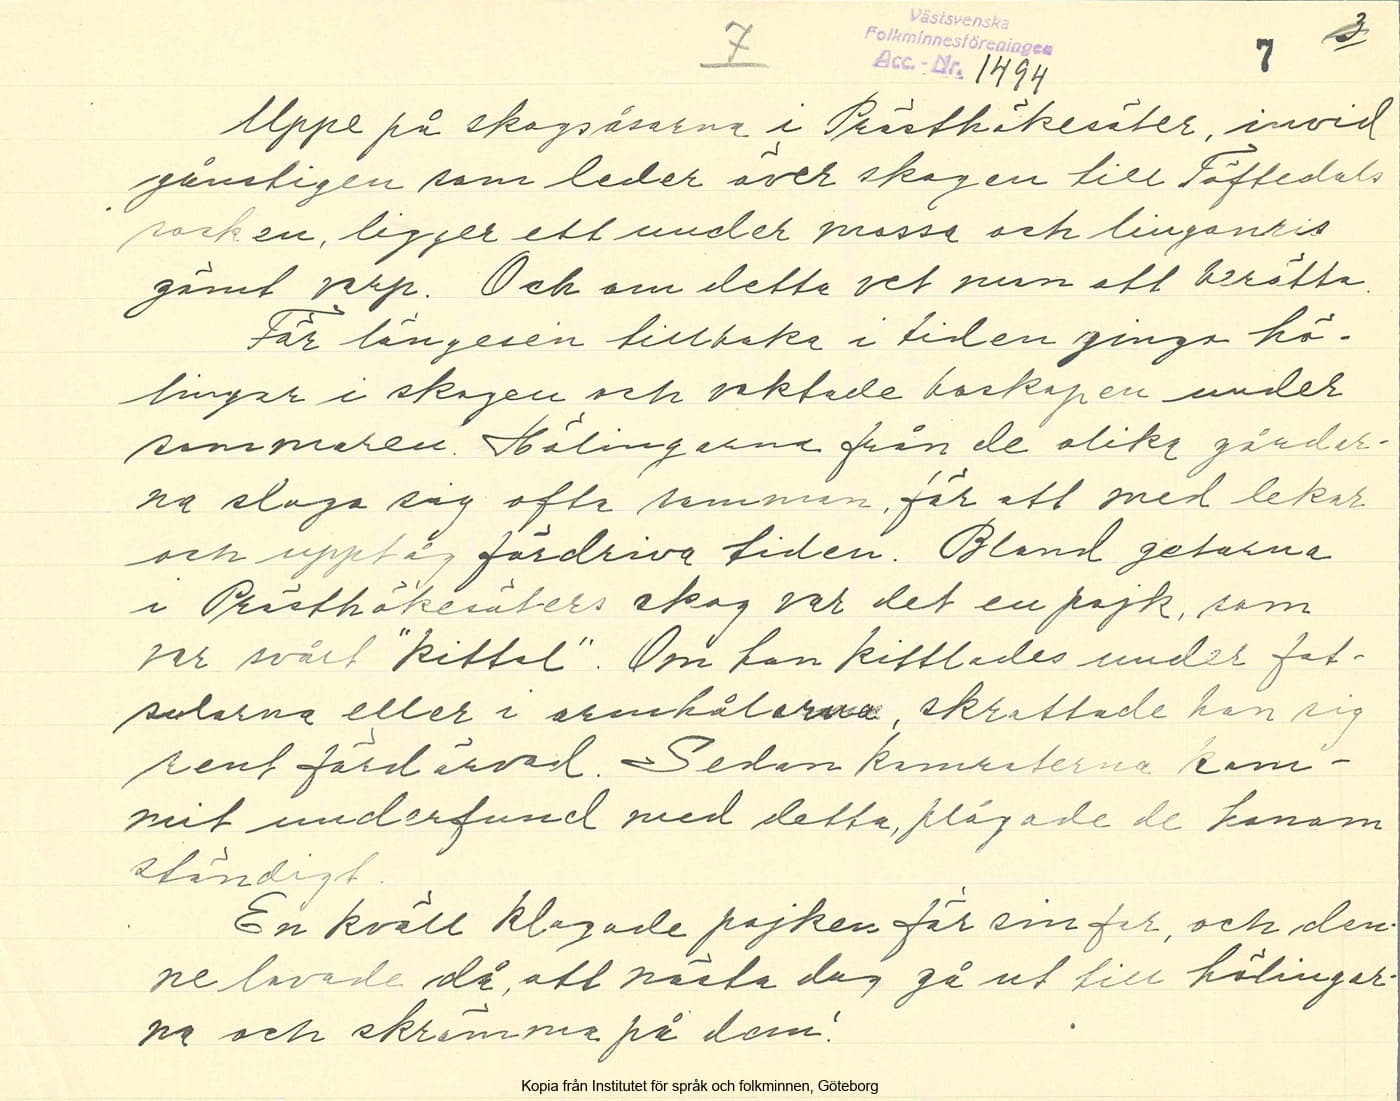 7
Västsvenska
Folkminnesföreningen
Acc. - Nr. 1494
7
3
Uppe på skogsåsarna i Prästhökesäter, invid
gångstigen som leder över skogen till Töftedals
socken, ligger ett under mossa och lingonris
gömt varp. Och om detta vet man att berätta.
För längesen tillbaka i tiden gingo hö-
lingar i skogen och vaktade boskapen under
sommaren. Hölingarna från de olika gårdar-
na slogo sig ofta samman, för att med lekar
och upptåg fördriva tiden. Bland getarna
i Prästhökesäters skog var det en pojk, som
var svårt "kittal". Om han kittlades under fot-
sulorna eller i armhålorna, skrattade han sig
rent fördärvad. Sedan kamraterna kom-
mit underfund med detta, plågade de honom
ständigt.
En kväll klagade pojken för sin far, och den-
ne lovade då, att nästa dag gå ut till hölingar-
na och skrämma på dem!
Kopia från Institutet för språk och folkminnen, Göteborg